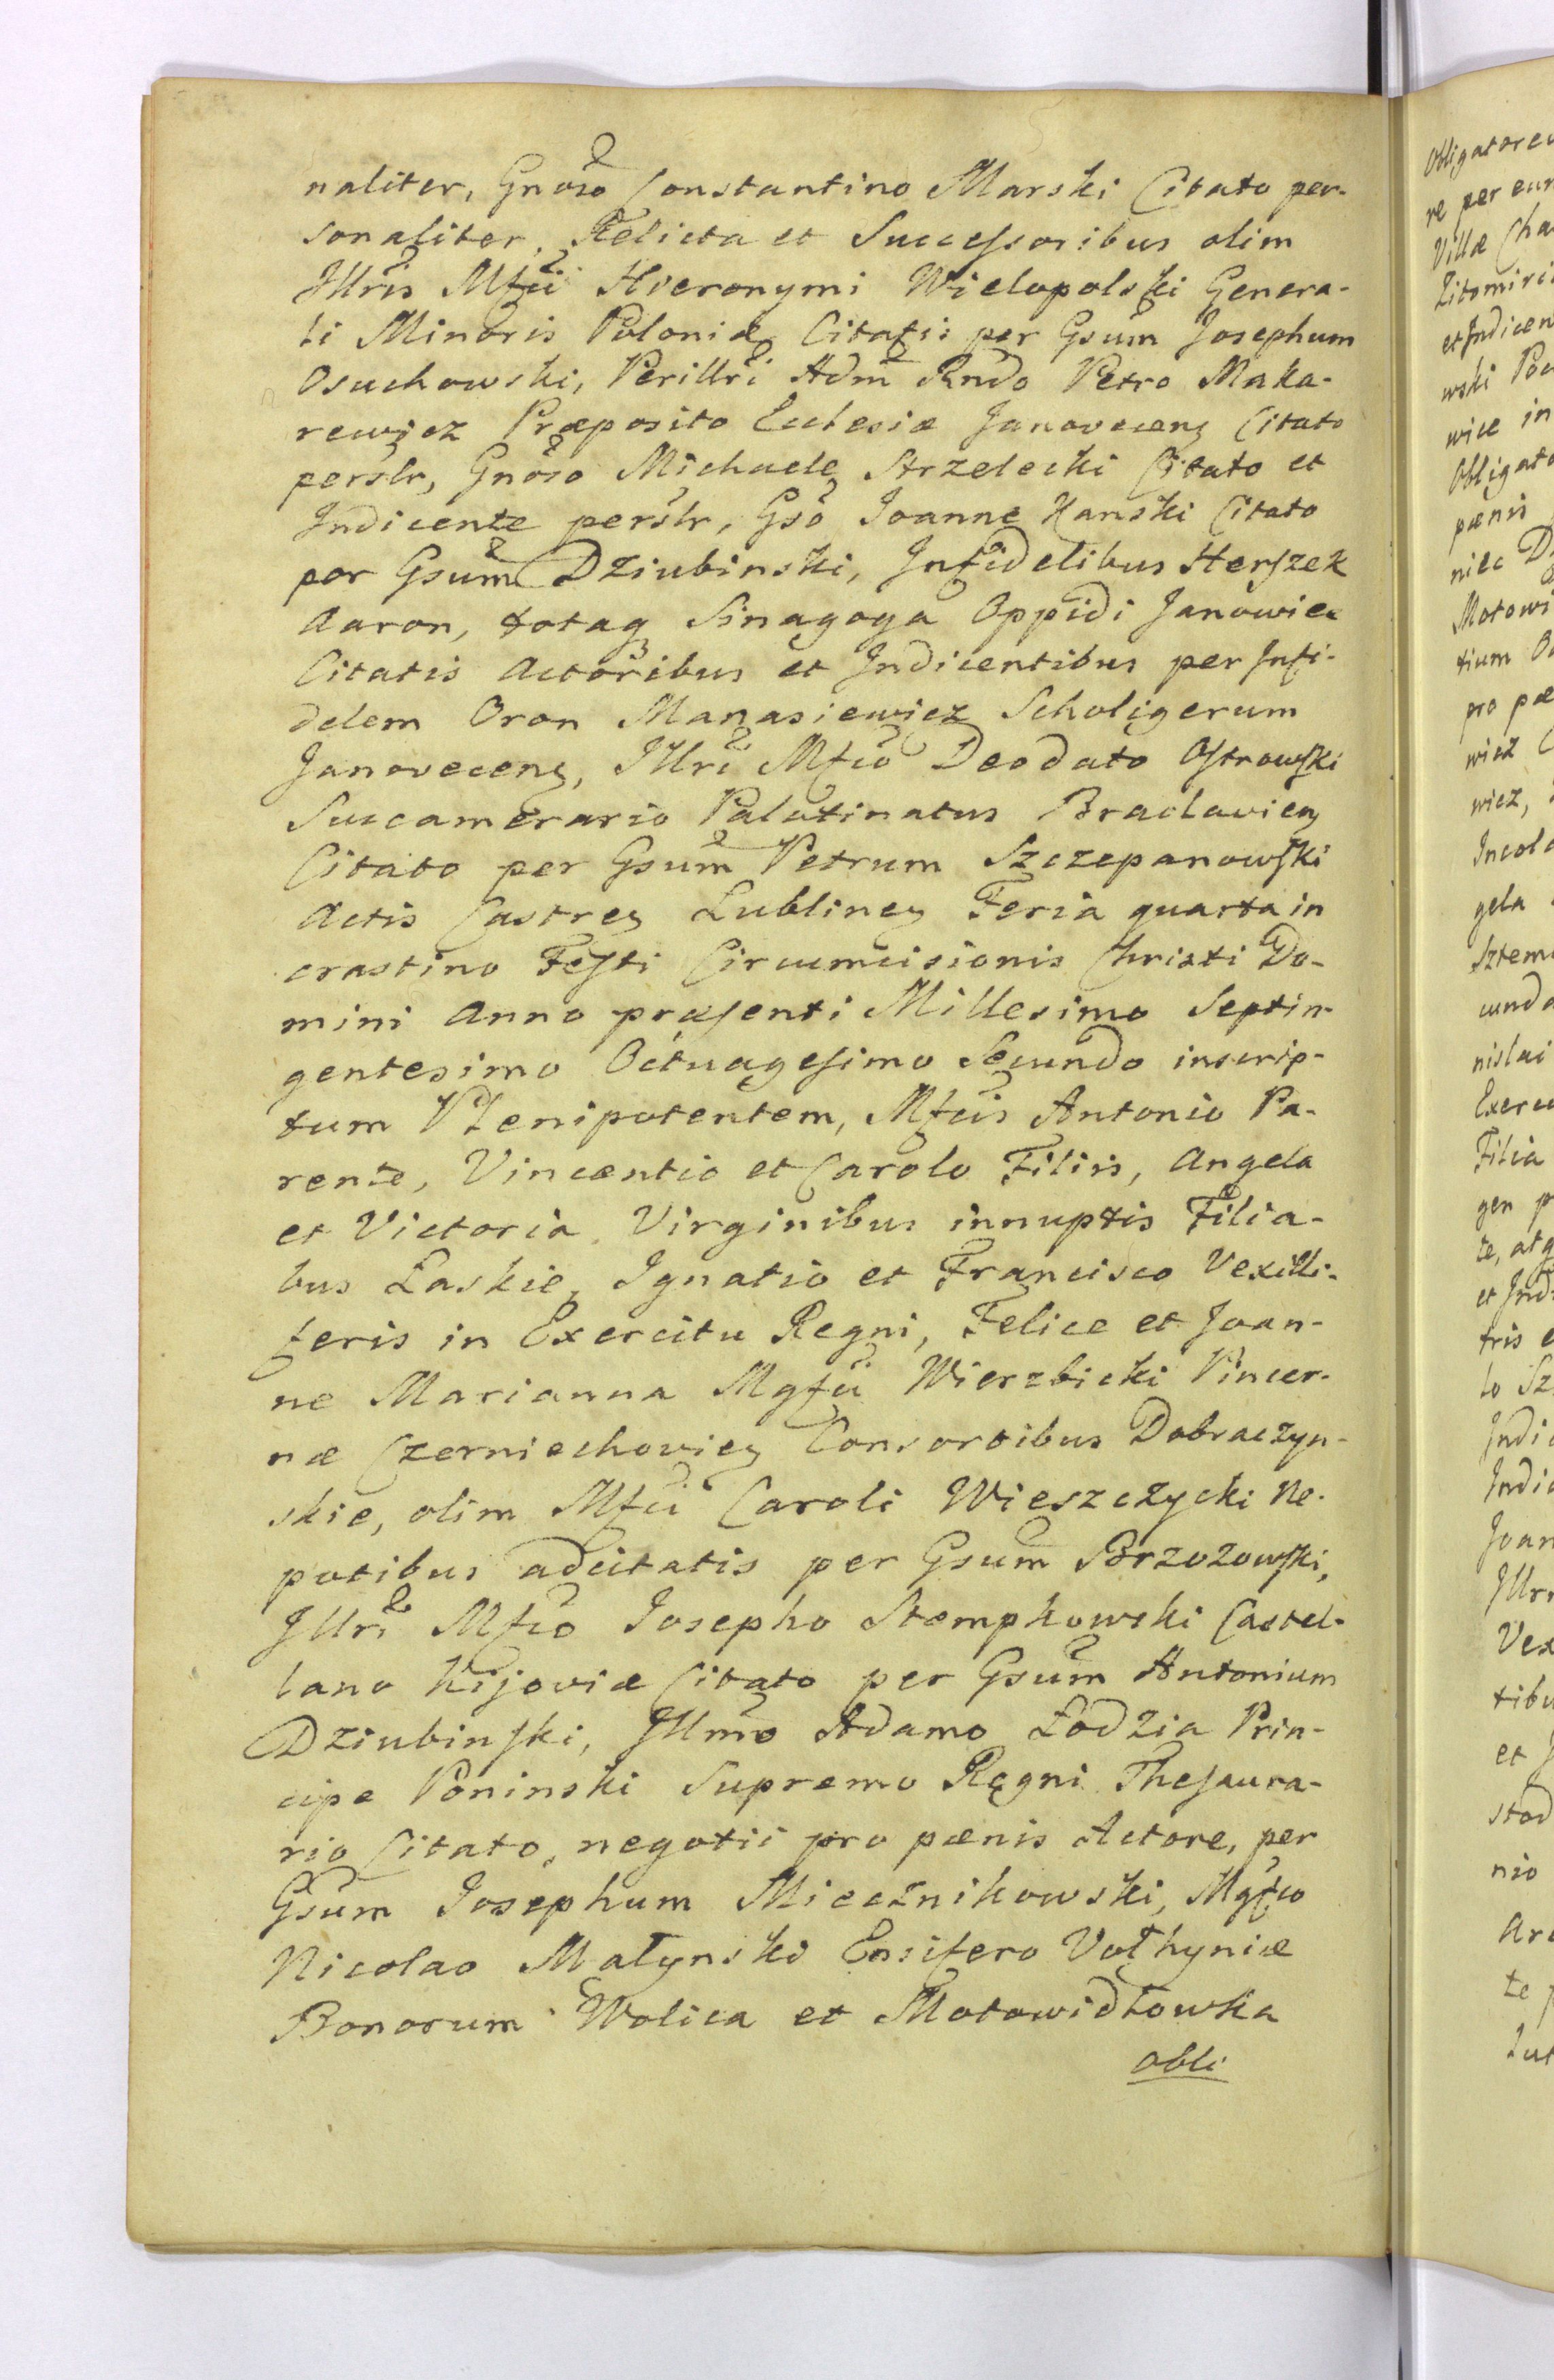 naliter, Gnoso Constantino Marski Citato per-
sonaliter, Relicta et Successoribus olim
Illris Mfci Hieronymi Wielopolski Genera-
li Minoris Poloniæ Citatis per Gsum Josephum
Osuchowski, Perillri Adm Rndo Petro Maka-
rewicz Præposito Ecclesiæ Janovecens Citato
perslr, Gnoso Michaele Strzelecki Citato et
Indicente perslr, Gso Joanne Kanski Citato
per Gsum Dziubinski, Infidelibus Herszek
Aaron, totaq Sinagoga Oppidi Janowiec
Citatis Actoribus et Indicentibus per Infi-
delem Oron Manasiewicz Scholigerum
Janovecens, Illri Mfco Deodato Ostrowski
Succamerario Palatinatus Braclavien
Citato per Gsum Petrum Szczepanowski
Actis Castren Lublinen Feria quarta in
crastino Festi Circumcisionis Christi Do-
mini Anno præsenti Millesimo Septin-
gentesimo Octuagesimo Secundo inscrip-
tum Plenipotentem, Mfcis Antonio Pa-
rente, Vincentio et Carolo Filiis, Angela
et Victoria Virginibus innuptis Filia-
bus Łaskie, Ignatio et Francisco Vexilli-
feris in Exercitu Regni, Felice et Joan-
ne Marianna Mgfci Wierzbicki Pincer-
næ Czerniechovien Consortibus Dobraczyn-
skie, olim Mfci Caroli Wieszczycki Ne-
potibus adcitatis per Gsum Brzozowski,
Illri Mfco Josepho Stempkowski Castel-
lano Kijoviæ Citato per Gsum Antonium
Dziubinski, Illmo Adamo Łodzia Prin-
cipe Poninski Supremo Regni Thesaura-
rio Citato, negotii pro pænis Actore, per
Gsum Josephum Miecznikowski, Mgfco
Nicolao Małynski Ensifero Vołhyniæ
Bonorum Wolica et Motowidłowka
obli
Obligatore
re per eun
Villæ Cha
Zitomiri
et Indicen
wski Po
wice in
Obligato
pænis
niec D
Motowi
tium
pro pæ
wicz
wicz,
Incol
gela
Sztem
cund
nislai
Exerc
Filia
gen p
te, atq
et Ind
tris
lo Sz
Indi
Indi
Joan
Illr
Vex
tibu
et
stod
nio
Ar
te